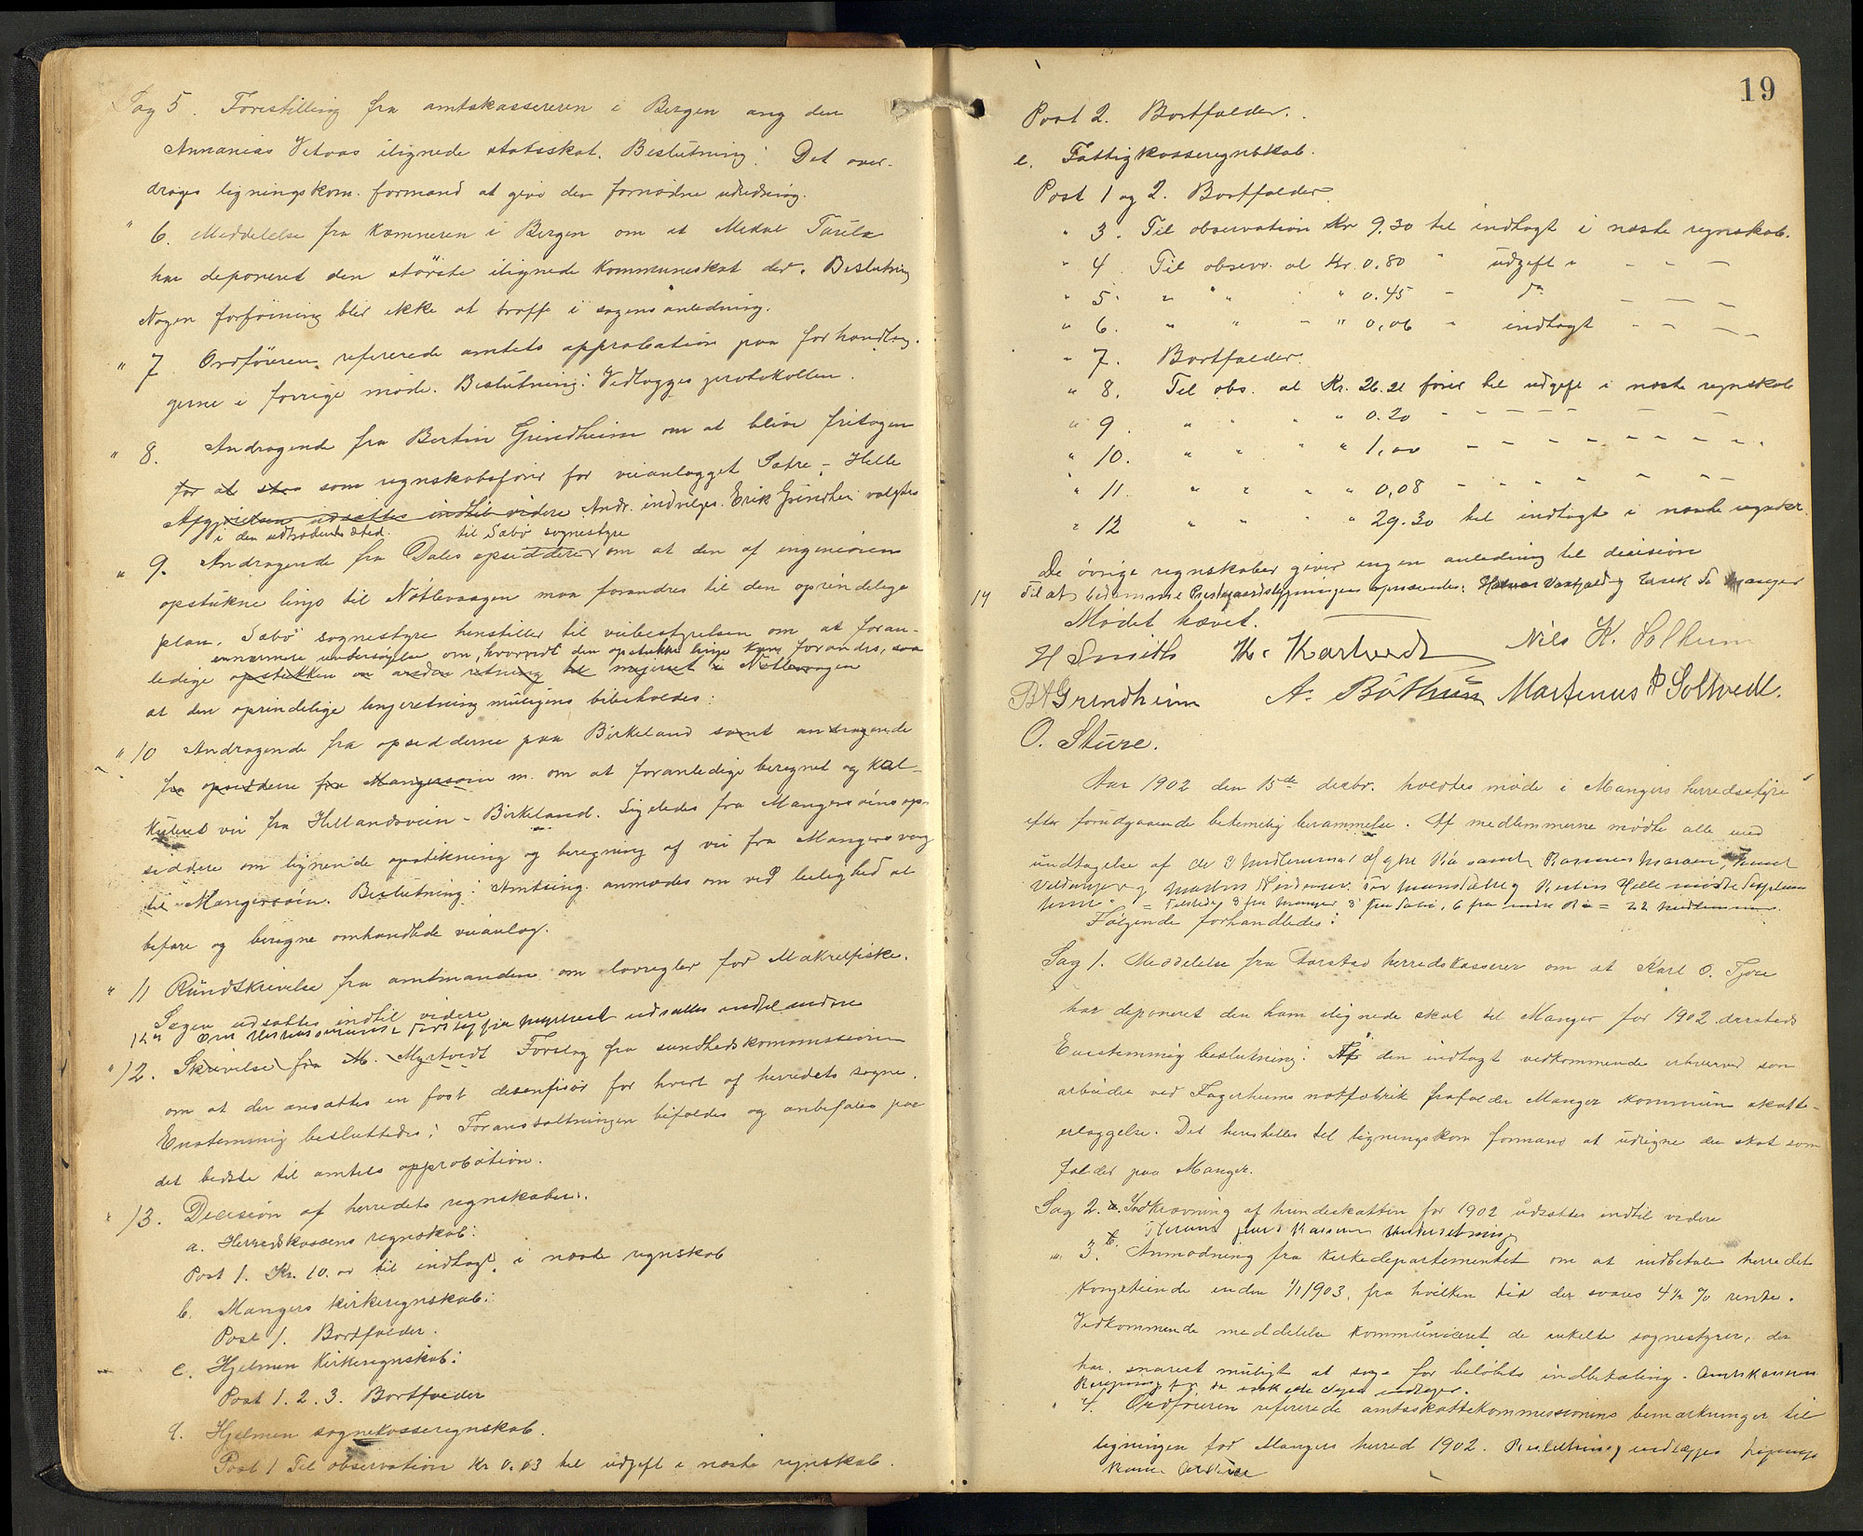 Sag 5. Forestilling fra amtskassereren i Bergen ang den
Annanias Vetaas ilignede statsskat. Beslutning: Det over-
drages ligningskom. formand at give den fornødne udredning.
" 6. Meddelelse fra Kæmneren i Bergen om at
har deponeret den største ilignede Kommuneskat der. Beslutning
Nogen forføining blir ikke at træffe i sagens anledning.
" 7. Ordføreren refererede amtets approbation paa forhandlin-
gerne i forrige møde. Beslutning: Vedlægges protokollen.
" 8. Andragende fra Bertin Grindheim om at blive fritagen
for at staa som regnskabsfører for veianlægget Sætre - Helle
Afgjørelsen udsættes indtil videre Andr. indvilges. Erik Grindhei valgtes
i den udtrædendes sted. til Sæbø sognestyre
" 9. Andragende fra Dales opsiddere om at den af ingeniøren
opstukne linje til Nøtlevaagen maa forandres til den oprindelige
plan. Sæbø sognestyre henstiller til veibestyrelsen om at foran-
ennærmere undersøgelse om, hvorvidt den opstukne linje kan forandres, saa
ledige opstikken en anden retning i Nøtlevaagen
at den oprindelige lengeretning muligens bibeholdes:
" 10 Andragende fra opsidderne paa Birkeland samt andragende
fra opsiddere fra Mangersøien m. om at foranledige beregnet og kal-
kuleret vei fra Hellandsveien - Birkeland. Ligeledes fra Mangersøiens op-
siddere om lignende opstikning og beregning af vei fra Mangersvaag
til Mangersøien. Beslutning: Amtsing. anmodes om ved leilighed at
befare og beregne omhandlede veianlæg.
" 11 Rundskrivelse fra amtmanden om lovregler for Makrelfiske.
Sagen udsættes indtil videre
udsættes indtil videre
" 12. Skrivelse fra M. Myrtvedt Forslag fra sundhedskommissionen
om at der ansættes en fast desenfisør for hvert af herredets sogne.
Enstemmig besluttedes: Foranstaltningen bifaldes og anbefales paa
det bedste til amtets approbation.
" 13. Decision af herredets regnskaber:
a. Herredskassens regnskab:
Post 1. Kr. 10.00 til indtægt i næste regnskab
b. Mangers kirkeregnskab:
Post 1. Bortfalder.
c. Hjelmen Kirkeregnskab:
Post 1. 2. 3. Bortfalder
d. Hjelmen sognekasseregnskab.
Post 1 Til observation Kr 0.03 til udgift i næste regnskab.
19
Post 2. Bortfalder.
e. Fattigkasseregnskab.
Post 1 og 2. Bortfalder
" 3. Til observation Kr 9.30 til indtægt i næste regnskab.
" 4. Til observ. al Kr. 0.80 " udgift i - - -
" 5. " " " " 0.45 - do - - -
" 6. " " - " 0,06 " indtægt - - - -
" 7. Bortfalder
" 8. Til obs. al Kr. 26.21 føres til udgift i næste regnskab
" 9. " " " " 0.20 - - - - - - -
" 10. " " " " 1,00 - - - - - - -
" 11. " " " " 0,08 - - - - - - -
" 12 " " " " 29.30 til indtægt i næste regnskr.
De øvrige regnskaber giver ingen anledning til decision
14 Til at bedømme Prestegaardsbygningen opnævntes: og
Mødet hævet.
H Smith K. Kartvedt Nils K. Solheim
BAGrindheim A. Bøthun Martinus P Soltvedt.
O. Sture.
Aar 1902 den 15de decbr. holdtes møde i Mangers herredsstyre
efter forudgaaende betimelig berammelse. Af medlemmerne mødte alle med
undtagelse af de 3 medlemmer samt Rasmus
og Helle mødte
= Tilstede 3 fra Manger 3 fra Sæbø, 6 fra = 22 medlemmer.
Følgende forhandledes:
Sag 1. Meddelelse fra herredskasserer om at Karl O.
har deponeret den ham ilignede skat til Manger for 1902 dersteds
Enstemmig beslutning: For den indtægt vedkommende erhverved som
arbeider ved Fagerheims notfabrik frafalder Manger kommune skatte-
erlæggelse. Det henstilles til ligningskom formand at udregne den skat som
falder paa Manger.
Sag 2. a. Indkrævning af hundeskatten for 1902 udsættes indtil videre
b.
" 3. Anmodning fra Kirkedepartementet om at indbetale herredet
Kongetiende inden 1/1 1903, fra hvilken tid der svares 4 1/2 % rente.
Vedkommende meddelelse kommuniceret de enkelte sognestyrer, der
har snarest muligt at sørge for beløbets indbetaling. Amtskasseren
" 4. Ordføreren refererede amtsskattekommissionens bemærkninger til
ligningen for Mangers herred 1902. Beslutning